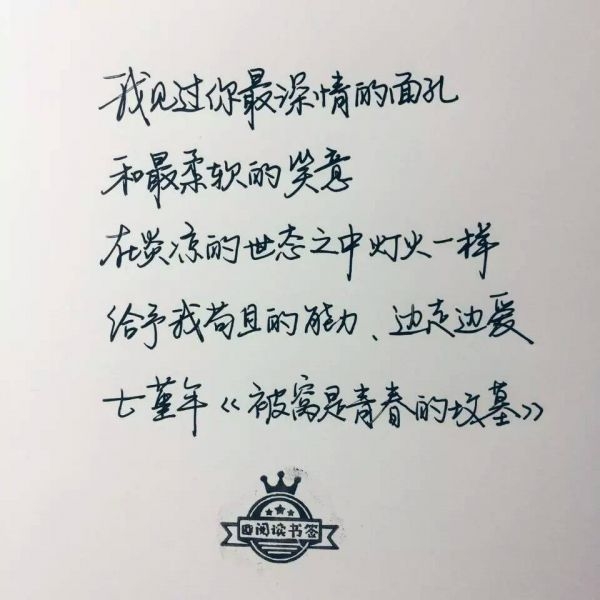 我见过你最深情的面孔
和最柔软的笑意
在炎凉的世态之中灯火一样
给予我苟且的能力、边走边爱
七堇年《被窝是青春的坟墓》
阅读书签